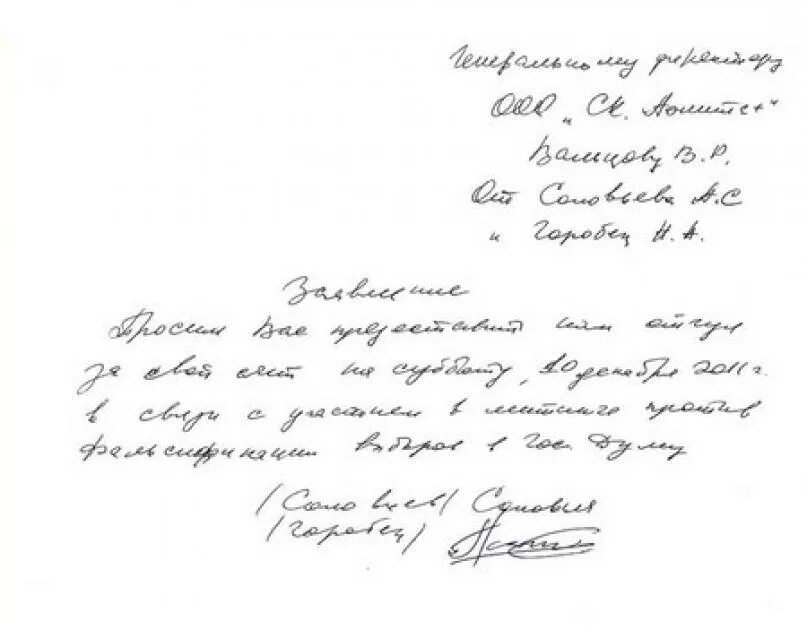 Генеральному директору
ООО „СК. Аолитс+"
Вальцову В.Р.
От Соловьева А.С
и Горобец Н.А.
Заявление
Просим Вас предоставить нам отгул
за свой счет на субботу, 10 декабря 2011 г.
в связи с участием в митинге против
фальсификации выборов в Гос. Думу
/Соловьев/ Соловьев
/Горобец/